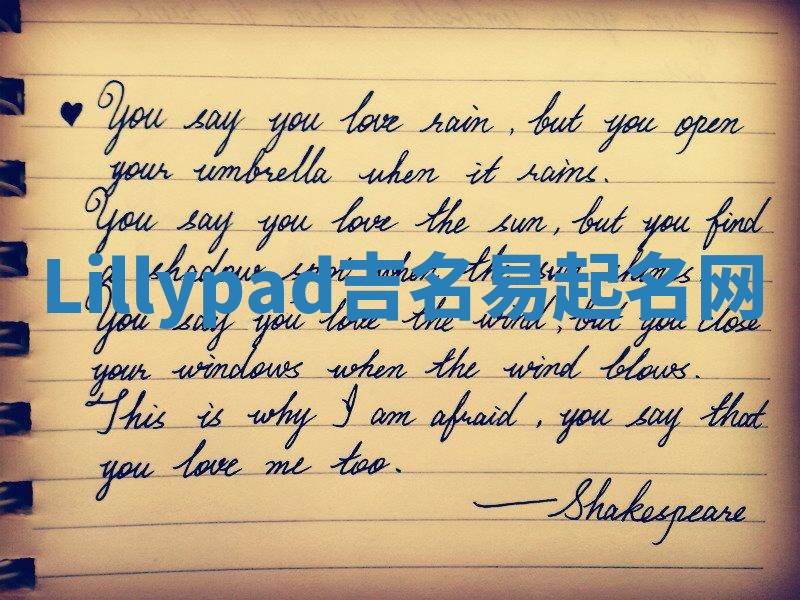 ♥ You say you love rain, but you open
your umbrella when it rains.
You say you love the sun, but you find
a shadow spot when the sun shines
Lillypad吉名易起名网
You say you love the wind, but you close
your windows when the wind blows.
This is why I am afraid, you say that
you love me too.
—Shakespeare